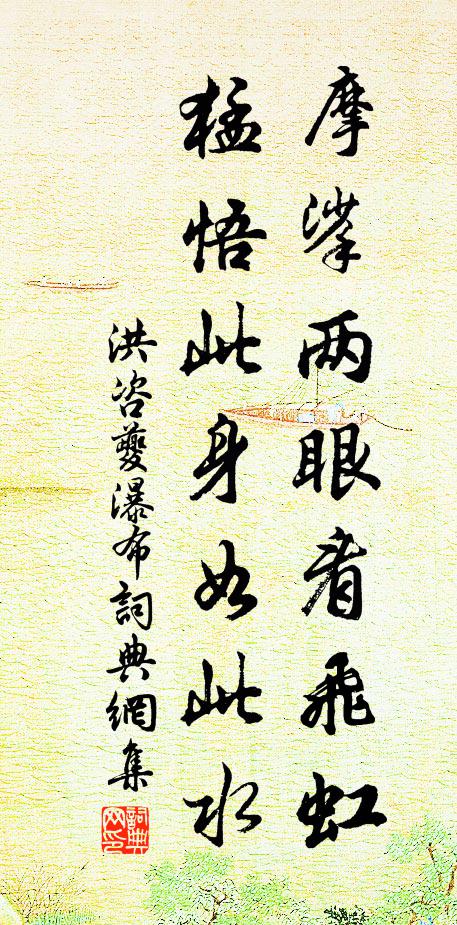 摩挲两眼看飛虹
猛悟此身如此水
洪咨夔瀑布詞典網集
詞典网印